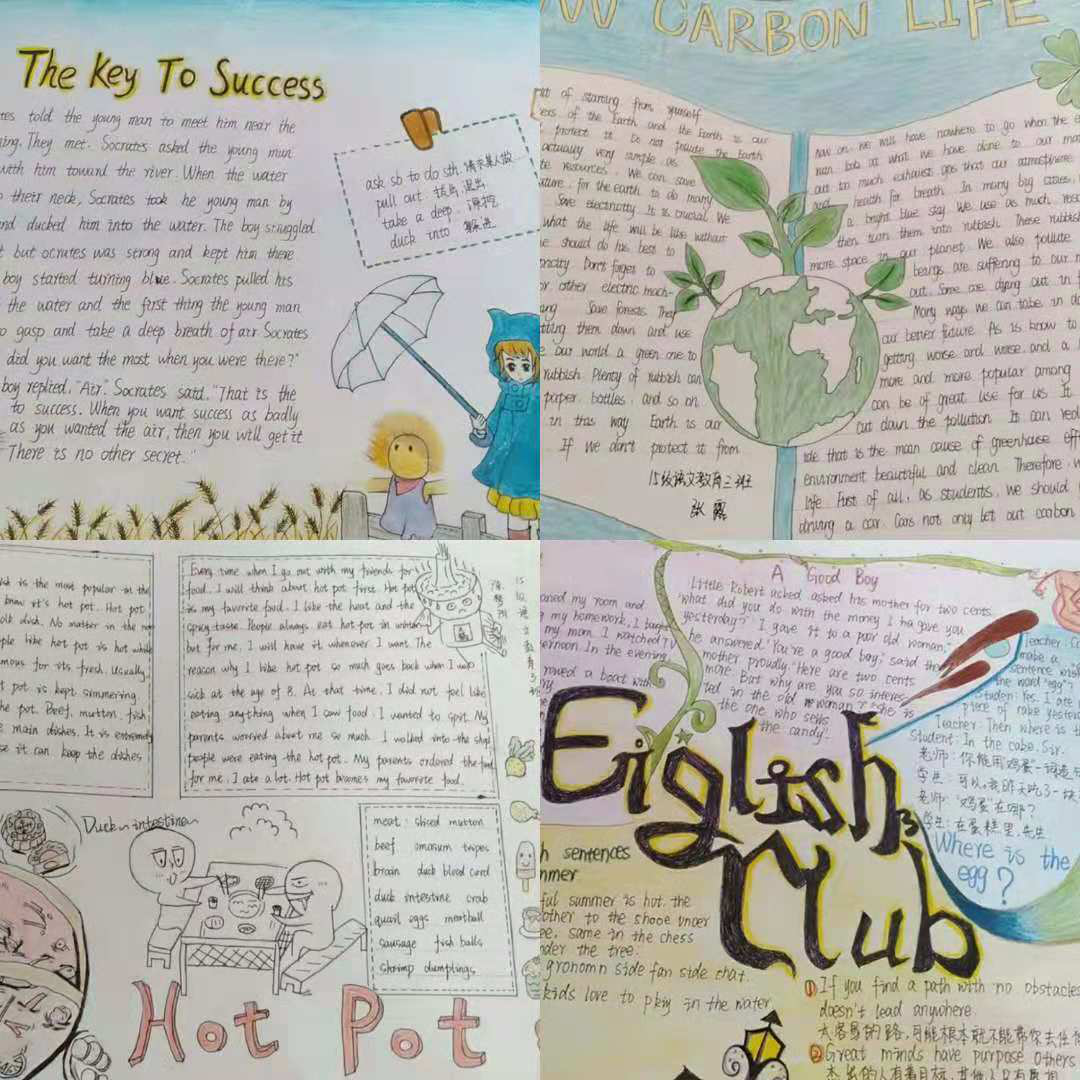 The Key To Success
tes told the young man to meet him near the
They met. Socrates asked the young man
with him toward the river. When the water
their neck, Socrates took he young man by
and ducked him into the water. The boy struggled
t but ocrates was strong and kept him there
boy started turning blue. Socrates pulled his
the water and the first thing the young man
o gasp and take a deep breath of air. Socrates
did you want the most when you were there?"
boy replied, "Air". Socrates said. "That is the
to success. When you want success as badly
as you wanted the air, then you will get it
There is no other secret."
ask sb to do sth. 请求某人做...
pull out 拔出 退出
take a deep
duck into 躲进
CARBON LIFE
of starting from yourself
of the Earth and the Earth is our
protect it. Do not pollute the Earth
actually very sample. as
te resources. We can save
for the earth to do many
Save electricity. It is crucial. We
what the life will be like without
e should do his best to
Don't forget to
or other electric mach-
Save forests. They
them down and use
our world a green one to
rubbish. Plenty of rubbish can
paper, bottles, and so on.
in this way. Earth is our
If we don't protect it from
15级语文教育三班
张露
now on, we will have nowhere to go when the e
look at what we have done to our
out too much exhaust gas that our atmosphere
and health for breath. In many big cities,
a bright blue sky. We use as much
then turn them into rubbish. These rubbish
more space in our planet. We also pollute
beings are suffering to our
out. Some are dying out in
Many ways we can take in
our better future. As is know to
getting worse and worse, and a
more and more popular among
can be of great use for us. It
cut down the pollution. It can
that is the main cause of greenhouse eff
environment beautiful and clean. Therefore, w
life. First of all, as students, we should
driving a car. Cars not only let out carbon
is the most popular in the
know it's hot pot. Hot pot
dish. No matter in the
ple like hot pot is hot while
mous for its fresh. Usually
t pot is kept simmering.
the pot. Beef, mutton, fish,
main dishes. It is extremely
se it can keep the dishes
Every time when I go out with my friends for
food. I will think about hot pot first. Hot pot
is my favorite food. I like the heat and the
spicy taste. People always eat hot pot in winter
but for me. I will have it whenever I want. The
reason why I like hot pot so much goes back when I was
sick at the age of 8. At that time. I did not feel like
eating anything when I saw food. I wanted to spit. My
parents worried about me so much. I walked into the shop
people were eating the hot pot. My parents ordered the food
for me. I ate a lot. Hot pot bcomes my favorite food.
Duck intestine
meat: sliced mutton
beef omasum tripes
brain duck blood curd
duck intestine crab
quail eggs meatball
sausage fish balls
shrimp dumplings
Hot Pot
A Good Boy
Little Robert asked asked his mother for two cents.
"what did you do with the money I have gave you
yesterday?" "I gave it to a poor old woman,"
he answered. "You're a good boy," said the
mother proudly. "Here are two cents
more. But why are you so interes-
ted in the old woman?" "She is
the one who sells
the candy."
aned my room and
my homework. I
my mum. I watched T
ernoon. In the evening
rowed a boat with
Teacher:
make a
sentence wish
the word "egg"?
Studen: Yes, I ate
piece of cake yester
Teacher: Then where is t
Student: In the cake, Sir.
老师: 你能用鸡蛋一词造
学生: 可以, 我昨天吃了一块
老师: "鸡蛋"在哪?
学生: 在蛋糕里, 先生
Where is the
egg?
English
Club
h sentences
mmer
ful summer is hot, the
other to the shooe under
ee, same in the chess
der the tree.
gronomn side fan side chat.
kids love to play in the water.
① If you find a path with no obstacles
doesn't lead anywhere.
太容易的路, 可能根本就不能带你去任何
② Great minds have purpose Others
杰出的人有着目标, 其他人只有愿望